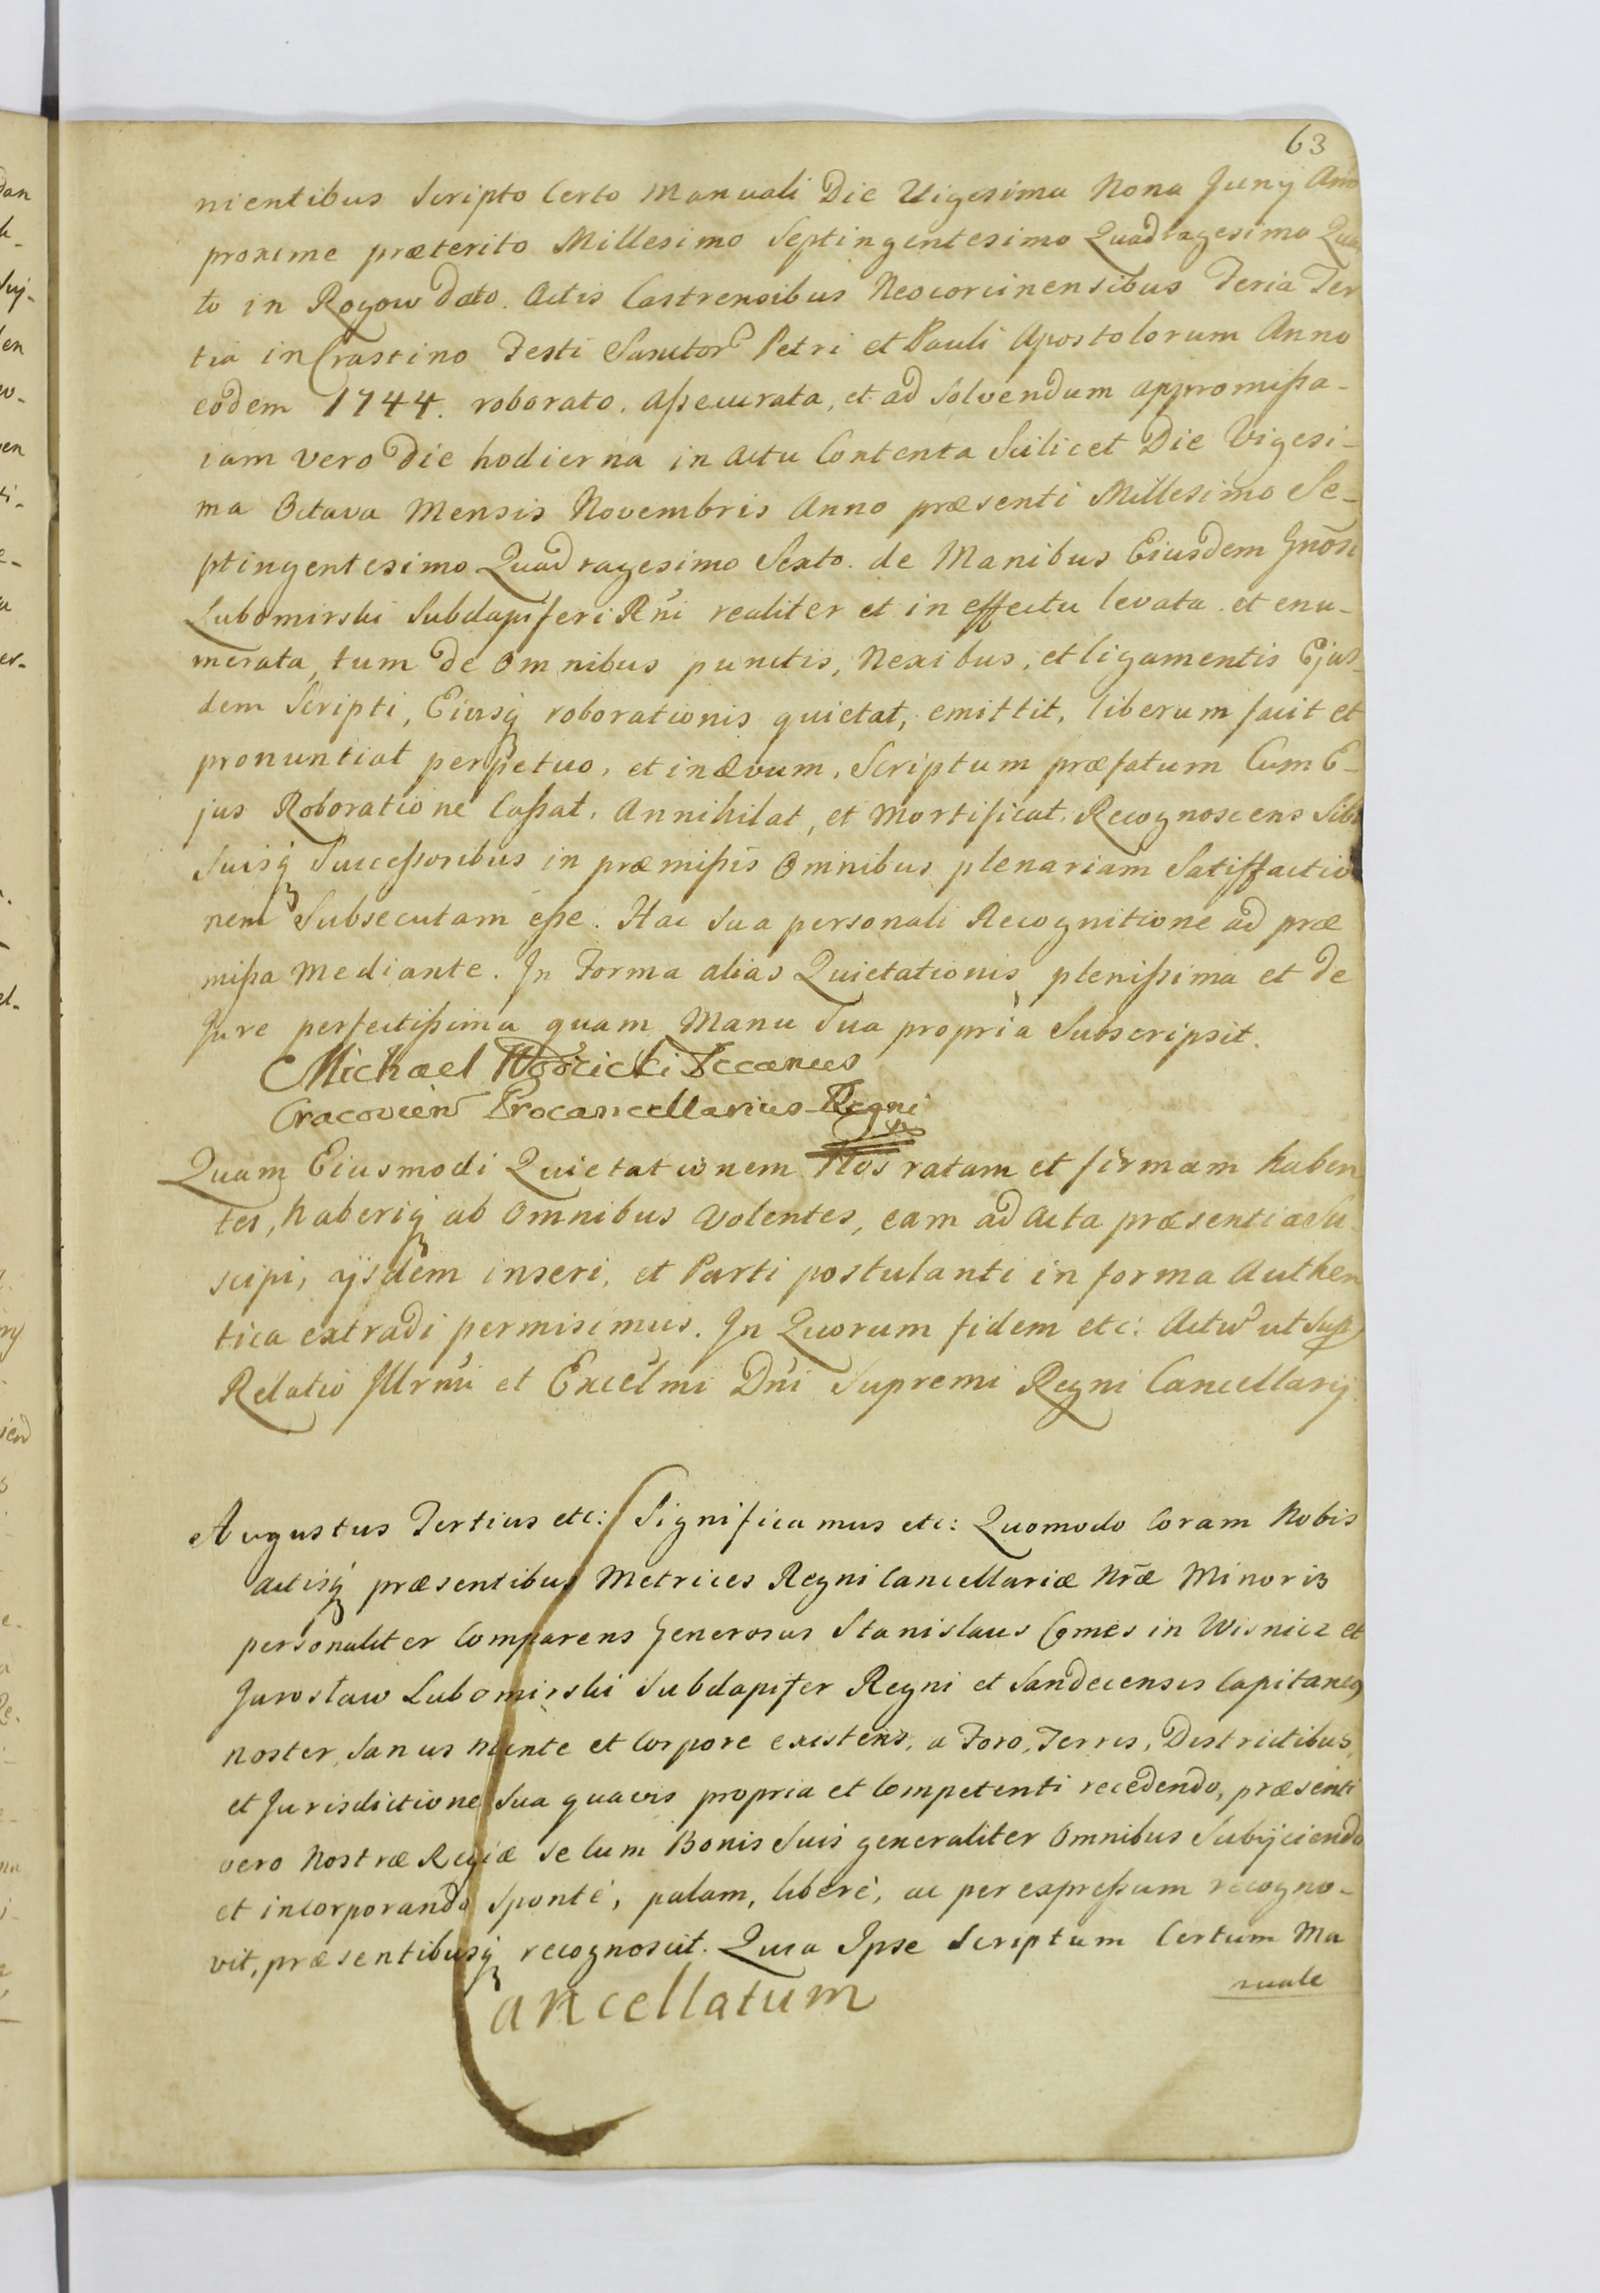 63
nientibus Scripto Certo Manuali Die Vigesima Nona Junij Ann̄o
proxime præterito Millesimo Septingentesimo Quadragesimo Quar
to in Rogow dato. Actis Castrensibus Neocorcinensibus Feria Ter
tia in Crastino Festi Sanctor Petri et Pauli Apostolorum Anno
eodem 1744. roborato. aßecurata, et ad solvendum appromißa-
iam vero die hodierna in actu Contenta Scilicet Die Vigesi-
ma Octava Mensis Novembris Anno præsenti Millesimo Se-
ptingentesimo Quadragesimo Sexto. de Manibus Eiusdem Gn̄osi
Lubomirski Subdapiferi Rn̄i realiter et in effectu levata. et enu-
merata, tum de omnibus punctis, Nexibus, et ligamentis Ejus-
dem Scripti, Eiusq; roborationis quietat, emittit, liberum facit et
pronuntiat perpetuo, et in ævum, Scriptum præfatum Cum E-
jus Roboratione Caßat, Annihilat, et Mortificat. Recognoscens Sibi
Suisq; Succeßoribus in præmißis Omnibus plenariam Satisfactio
nem Subsecutam eße. Hac Sua personali Recognitione ad præ
mißa Mediante. In Forma alias Quietationis plenißima et de
Jure perfectißima quam Manu Sua propria Subscripsit.
Michael Wodzicki Decanus
Cracovien Procancellarius Regni
Quam Eiusmodi Quietationem Nos ratam et firmam haben
tes, haberiq; ab Omnibus Volentes, eam ad Acta præsentia Su-
scipi, ijsdem inseri, et Parti postulanti in forma Authen
tica extradi permisimus. In Quorum fidem etc: Actu ut Sup
Relatio Illrn̄i et Excel̄mi Dn̄i Supremi Regni Cancellarij.
Augustus Tertius etc: Significamus etc: Quomodo Coram Nobis
actisq; præsentibus Metrices Regni Cancellariæ Nr̄æ Minoris
personaliter Comparens Generosus Stanislaus Comes in Wisnicz et
Jarosław Lubomirski Subdapifer Regni et Sandecensis Capitaneus
noster, Sanus mente et Corpore existens, a Foro, Terris, Districtibus,
et Jurisdictione Sua quavis propria et Competenti recedendo, præsenti
vero Nostræ Regiæ se Cum Bonis Suis generaliter Omnibus Subijciendo
et incorporando Sponte, palam, libere, ac per expreßum recogno-
vit, præsentibusq; recognoscit. Quia Ipse Scriptum Certum Ma
nuale
Cancellatum